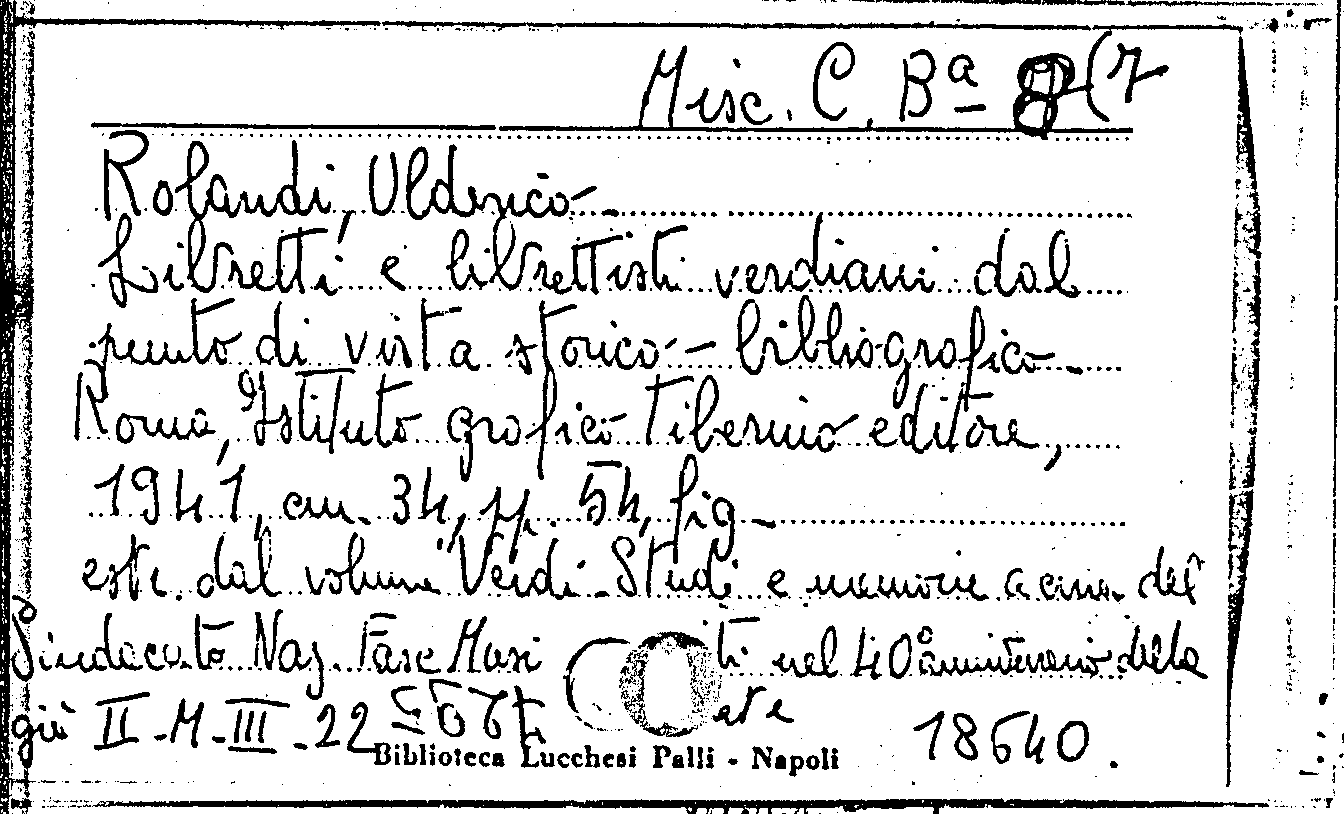 Misc. C. Bª 8(7
Rolandi, Ulderico -
Libretti e librettisti verdiani dal
punto di vista storico - bibliografico -
Roma, Istituto grafico Tiberino editore,
1941, cm. 34, pp. 54, fig -
estr. dal volume "Verdi - Studi e memorie a cura del
Sindacato Naz. Fasc Musi ti nel 40° anniversario della
già II - M - III - 22 18640.
Biblioteca Lucchesi Palli - Napoli